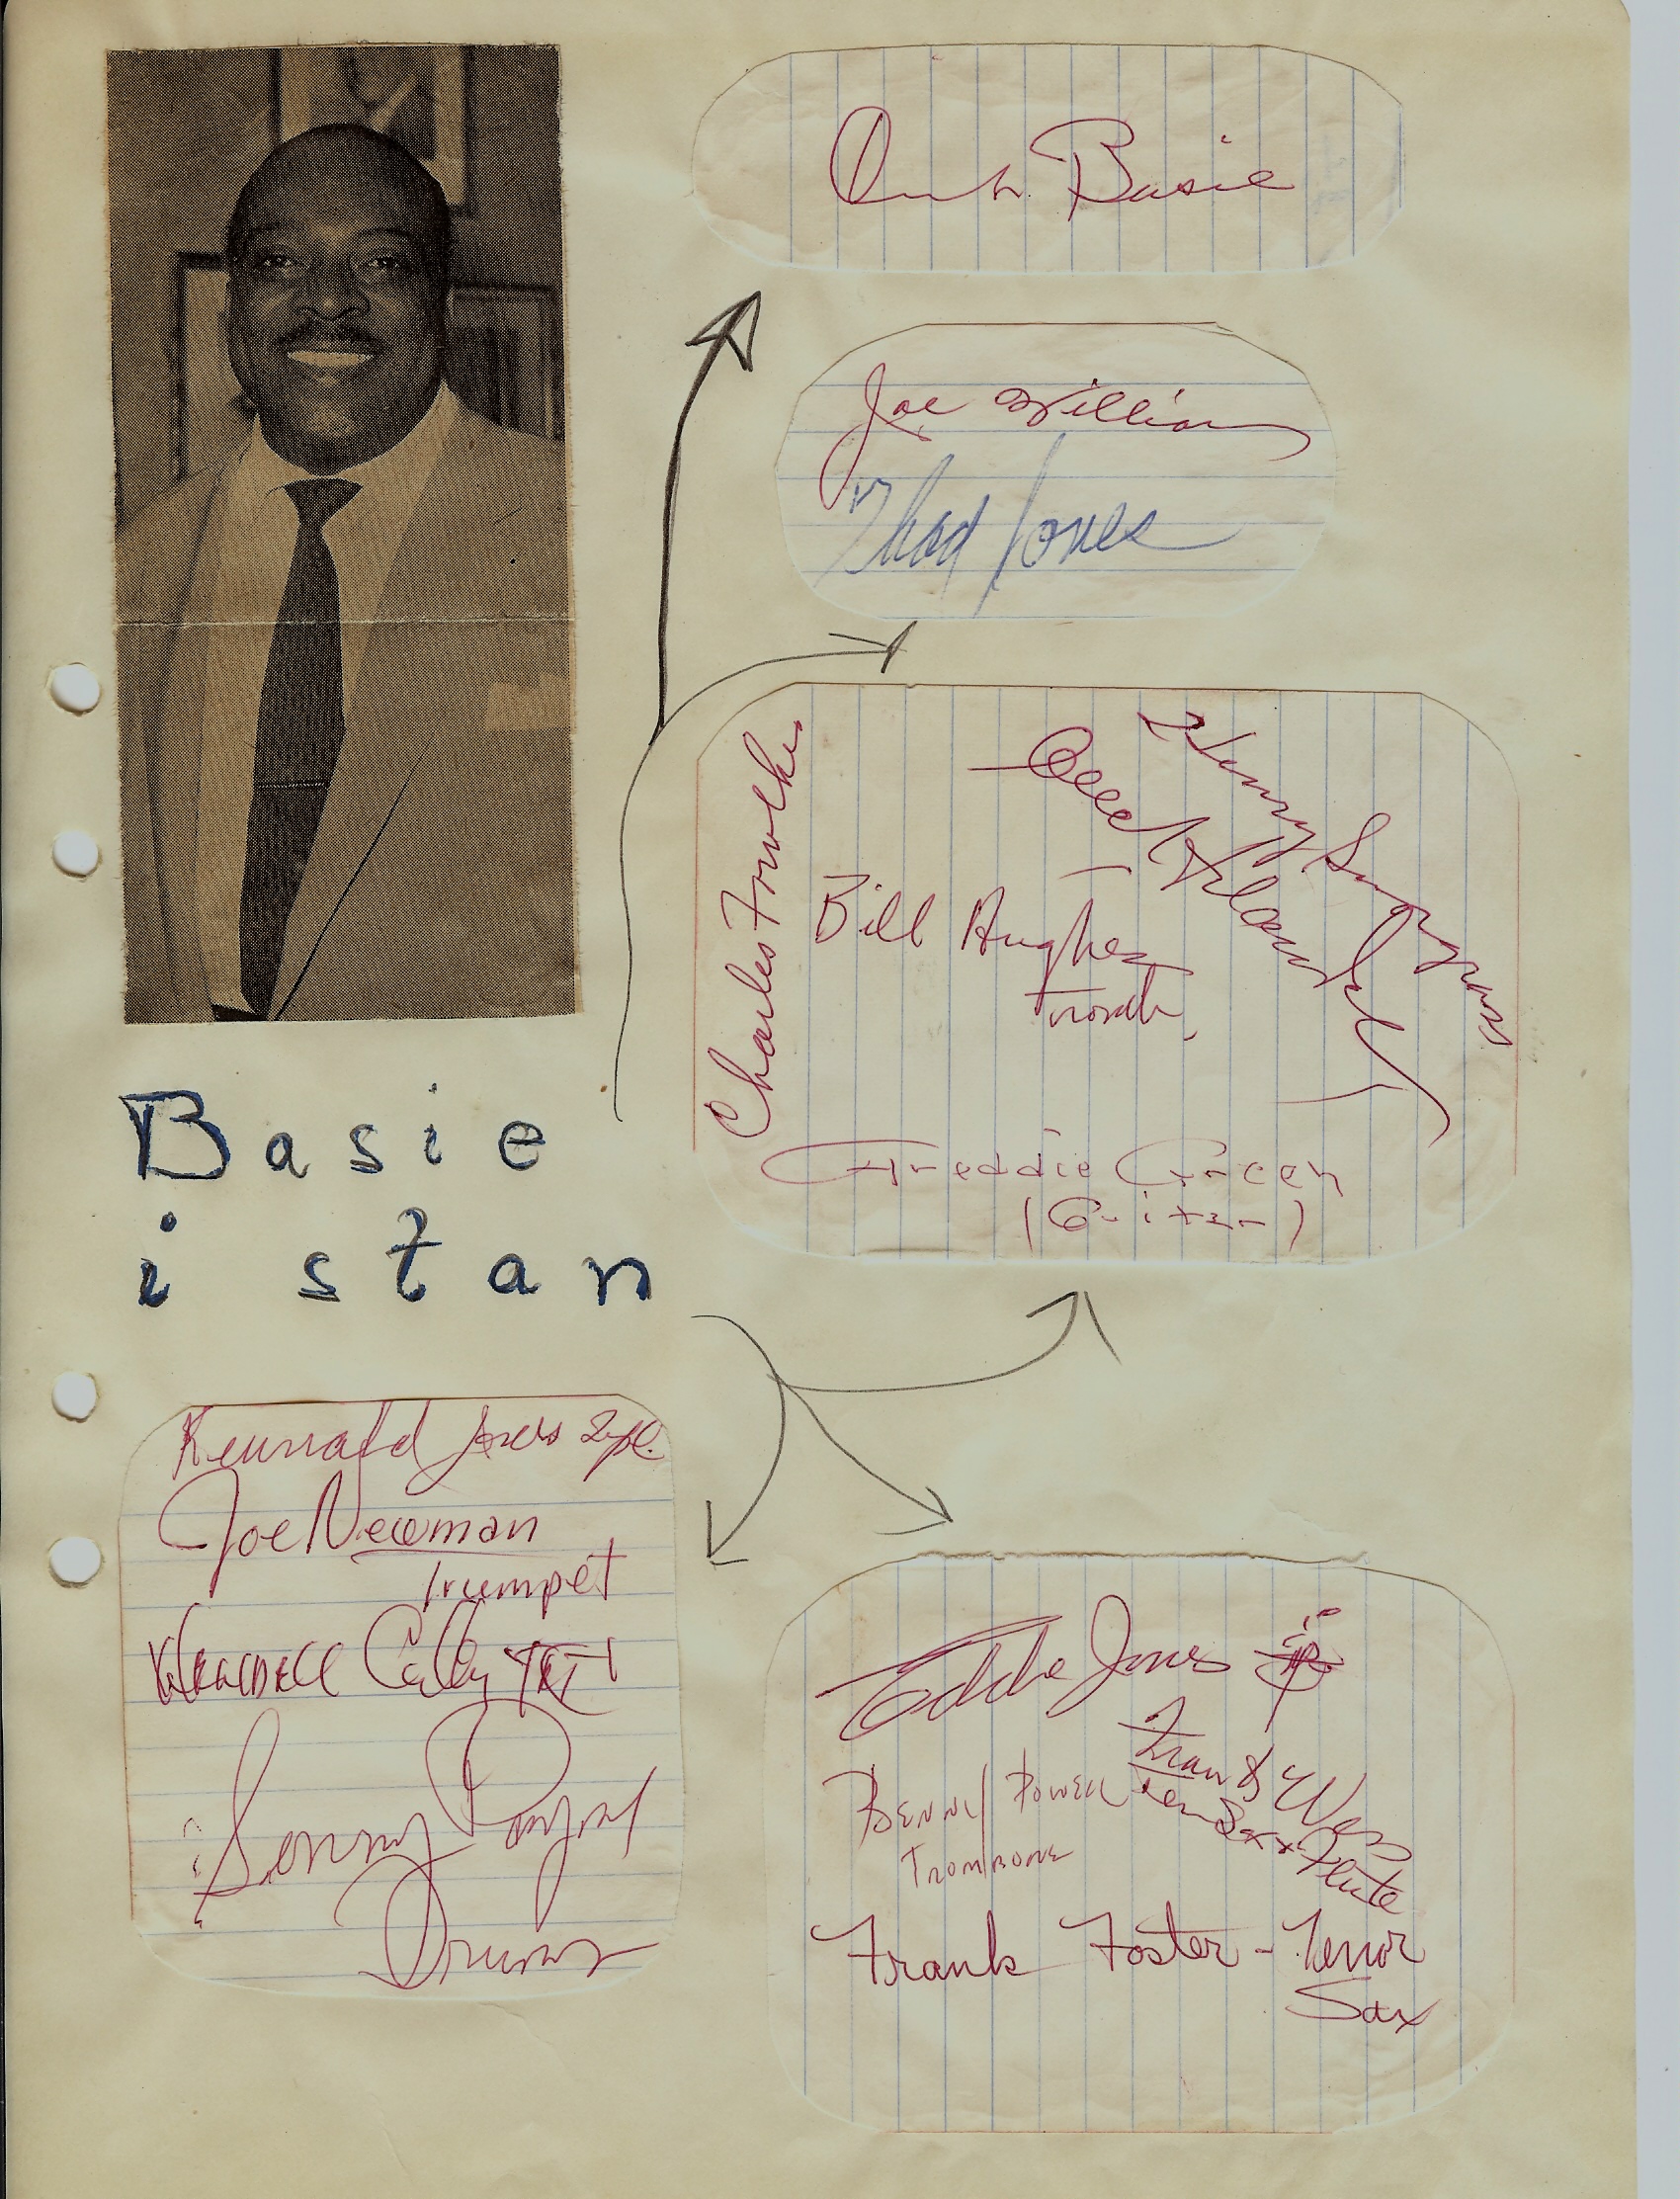 Basie
Joe Williams
Thad Jones
Charles Fowlkes
Henry
Bill Hughes
tromb.
Freddie Green
(Guitar)
Basie
i stan
Reunald Jones
Joe Newman
trumpet
Wendell Culley TPT
Sonny Payne
Drums
Eddie Jones
Frank Wess
Tenor Sax + Flute
BENNY POWELL
TROMBONE
Frank Foster - Tenor
Sax